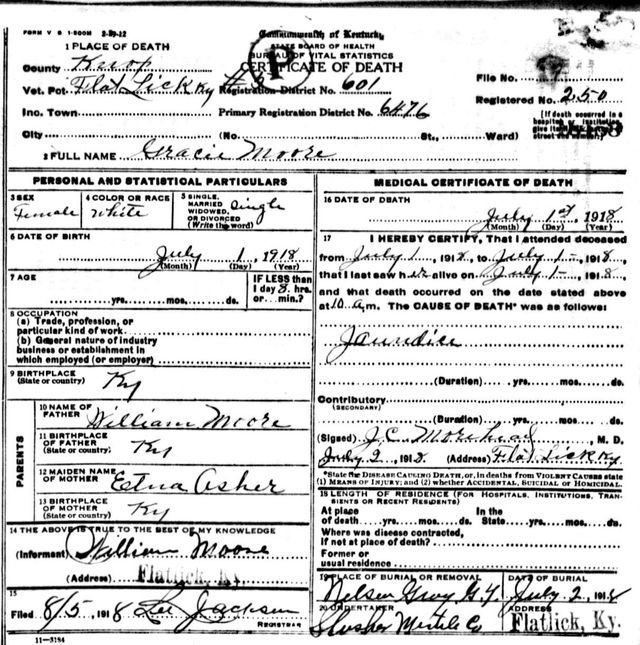 FORM V S 1-500M 2-29-12
Commonwealth of Kentucky
STATE BOARD OF HEALTH
BUREAU OF VITAL STATISTICS
CERTIFICATE OF DEATH
P
1 PLACE OF DEATH
County Knox
Vot. Pct Flat Lick Ky #3
Registration District No. 601
File No.
Inc. Town
Primary Registration District No. 6476
Registered No. 250
City (No. St., Ward)
[If death occurred in a
hospital or institution,
give its
street and number.]
2 FULL NAME Gracie Moore
PERSONAL AND STATISTICAL PARTICULARS
3 SEX
Female
4 COLOR OR RACE
White
5 SINGLE,
MARRIED
WIDOWED,
OR DIVORCED
(Write the word)
Single
6 DATE OF BIRTH
July 1, 1918
(Month) (Day) (Year)
7 AGE
yrs. mos. ds.
IF LESS than
1 day 8 hrs.
or min.?
8 OCCUPATION
(a) Trade, profession, or
particular kind of work
(b) General nature of industry
business or establishment in
which employed (or employer)
9 BIRTHPLACE
(State or country)
Ky
PARENTS
10 NAME OF
FATHER
William Moore
11 BIRTHPLACE
OF FATHER
(State or country)
Ky
12 MAIDEN NAME
OF MOTHER
Etna Asher
13 BIRTHPLACE
OF MOTHER
(State or country)
Ky
14 THE ABOVE IS TRUE TO THE BEST OF MY KNOWLEDGE
(Informant) William Moore
(Address) Flatlick, Ky.
15
Filed 8/5, 1918 Lee Jackson
REGISTRAR
11-3184
MEDICAL CERTIFICATE OF DEATH
16 DATE OF DEATH
July 1st, 1918
(Month) (Day) (Year)
17 I HEREBY CERTIFY, That I attended deceased
from July 1, 1918, to July 1-, 1918,
that I last saw her alive on July 1-, 1918,
and that death occurred on the date stated above
at 10 a.m. The CAUSE OF DEATH* was as follows:
Jaundice
(Duration) yrs. mos. ds.
Contributory
(SECONDARY)
(Duration) yrs. mos. ds.
(Signed) J.C. Morehead M. D.
July 2, 1918. (Address) Flat Lick Ky
*State the DISEASE CAUSING DEATH, or, in deaths from VIOLENT CAUSES state
(1) MEANS OF INJURY; and (2) whether ACCIDENTAL, SUICIDAL or HOMICIDAL.
18 LENGTH OF RESIDENCE (FOR HOSPITALS, INSTITUTIONS, TRAN-
SIENTS OR RECENT RESIDENTS)
At place
of death yrs. mos. ds.
In the
State yrs. mos. ds.
Where was disease contracted,
if not at place of death?
Former or
usual residence
19 PLACE OF BURIAL OR REMOVAL
Nelson
DATE OF BURIAL
July 2, 1918
20 UNDERTAKER
Slusher
ADDRESS
Flatlick, Ky.